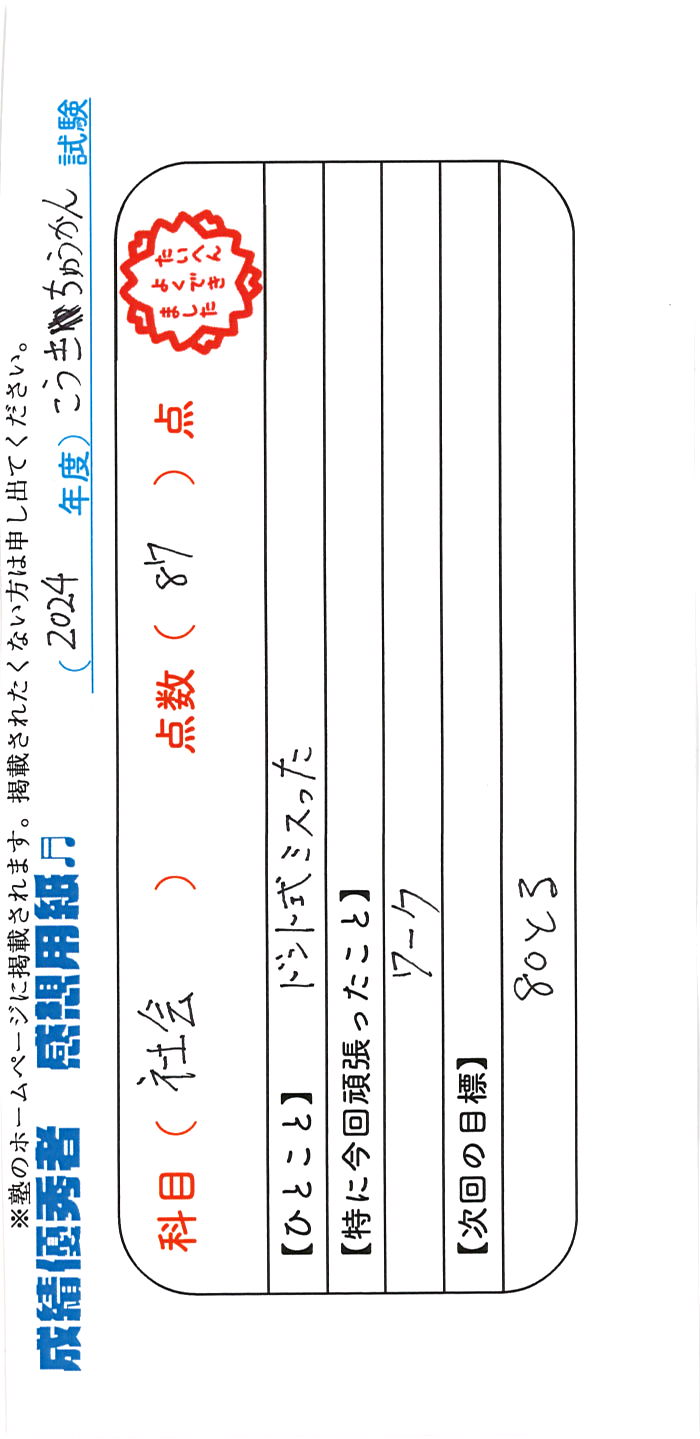 ※塾のホームページに掲載されます。掲載されたくない方は申し出てください。
成績優秀者 感想用紙♬ (2024 年度) こうきちゅうかん 試験
科目( 社会 ) 点数( 87 )点
たいへん
よくでき
ました
【ひとこと】 ドント式ミスった
【特に今回頑張ったこと】
ワーク
【次回の目標】
80とる